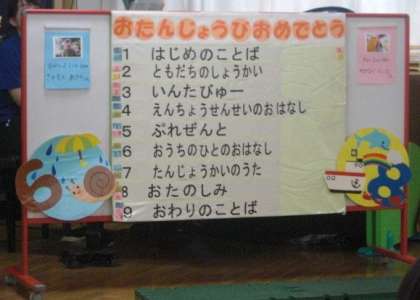 おたんじょうびおめでとう
1 はじめのことば
2 ともだちのしょうかい
3 いんたびゅー
4 えんちょうせんせいのおはなし
5 ぷれぜんと
6 おうちのひとのおはなし
7 たんじょうかいのうた
8 おたのしみ
9 おわりのことば
6
8